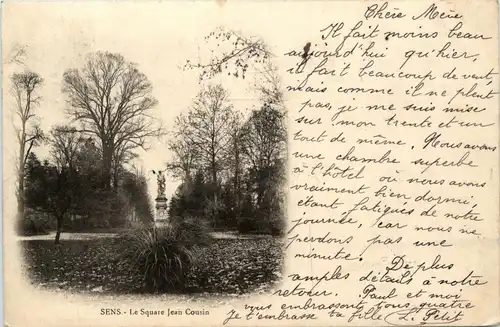 Chère Mère
Il fait moins beau
aujourd'hui qu'hier,
il fait beaucoup de vent
mais comme il ne pleut
pas, je me suis mise
sur mon trente et un
tout de même. Nous avons
une chambre superbe
à l'hôtel où nous avons
vraiment bien dormi
étant fatigués de notre
journée, car nous ne
perdons pas une
minute. De plus
amples détails à notre
retour. Paul et moi
vous embrassons tous quatre
Je t'embrasse ta fille L. Petit
SENS. - Le Square Jean Cousin